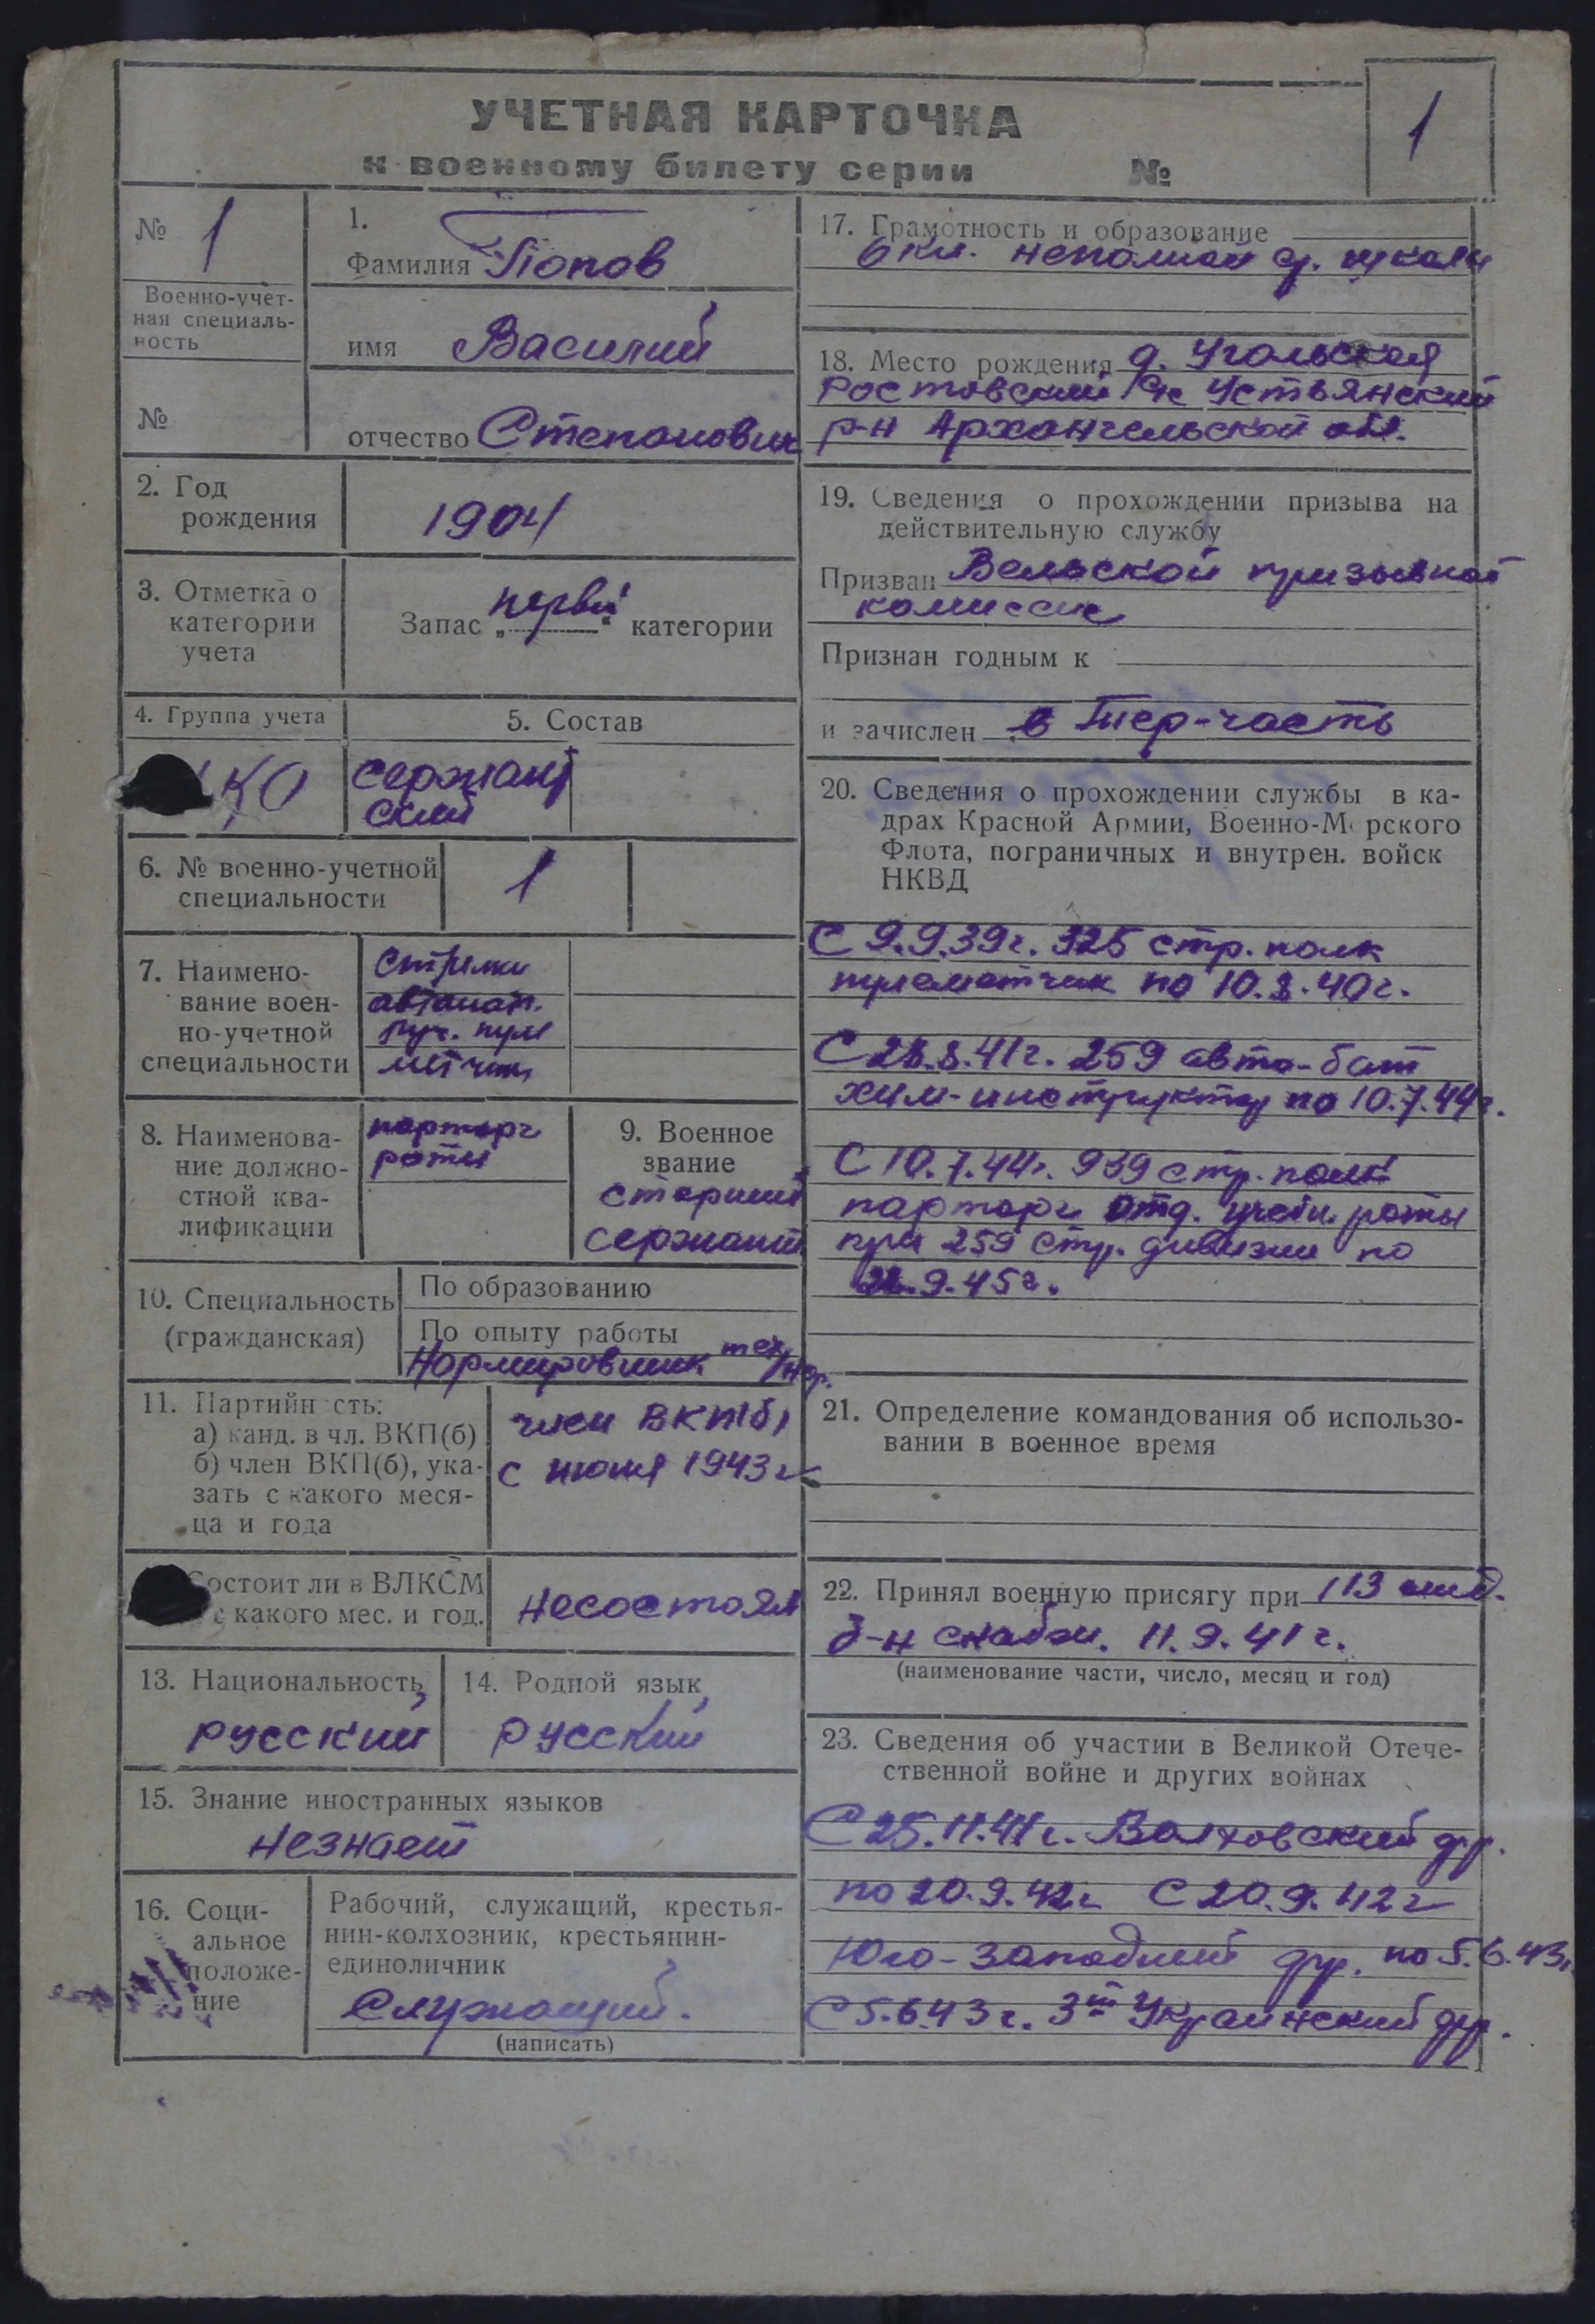 УЧЕТНАЯ КАРТОЧКА
к военному билету серии №
1
№ 1
Военно-учет-
ная специаль-
ность
№
1.
Фамилия Попов
имя Василий
отчество Степанович
2. Год
рождения
1904
3. Отметка о
категории
учета
Запас „первой“ категории
4. Группа учета
5. Состав
КО
сержант
ский
6. № военно-учетной
специальности
1
7. Наимено-
вание воен-
но-учетной
специальности
стрелки
автомат.
руч. пуле
метчик
8. Наименова-
ние должно-
стной ква-
лификации
парторг
роты
9. Военное
звание
старший
сержант
10. Специальность
(гражданская)
По образованию
По опыту работы
Нормировщик тех/нор.
11. Партийн сть:
а) канд. в чл. ВКП(б)
б) член ВКП(б), ука-
зать с какого меся-
ца и года
член ВКП(б)
с июня 1943 г
Состоит ли в ВЛКСМ
с какого мес. и год.
несостоял
13. Национальность
русский
14. Родной язык
русский
15. Знание иностранных языков
незнает
16. Соци-
альное
положе-
ние
Рабочий, служащий, крестья-
нин-колхозник, крестьянин-
единоличник
Служащий.
(написать)
17. Грамотность и образование
6 кл. неполной ср. школы
18. Место рождения д. Угольская
Ростовский с/с Устьянский
р-н Архангельской обл.
19. Сведения о прохождении призыва на
действительную службу
Призван Вельской призывной
комиссие
Признан годным к
и зачислен в Тер-часть
20. Сведения о прохождении службы в ка-
драх Красной Армии, Военно-Морского
Флота, пограничных и внутрен. войск
НКВД
С 9.9.39г. 325 стр. полк
пулеметчик по 10.8.40г.
С 28.8.41г. 259 авто-бат
хим-инструктор по 10.7.44г.
С 10.7.44г. 939 стр. полк
парторг отд. учебн. роты
при 259 стр. дивизии по
9.45г.
21. Определение командования об использо-
вании в военное время
22. Принял военную присягу при 113
б-н снабж. 11.9.41г.
(наименование части, число, месяц и год)
23. Сведения об участии в Великой Отече-
ственной войне и других войнах
С 25.11.41г. Волховский фр.
по 20.9.42г С 20.9.42г
Юго-Западный фр. по 5.6.43г.
С 5.6.43г. 3й Украинский фр.